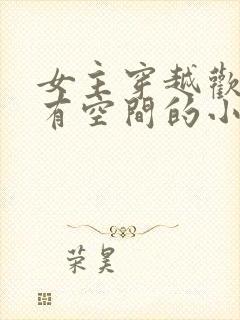 女主穿越歡
有空間的小
荣昊